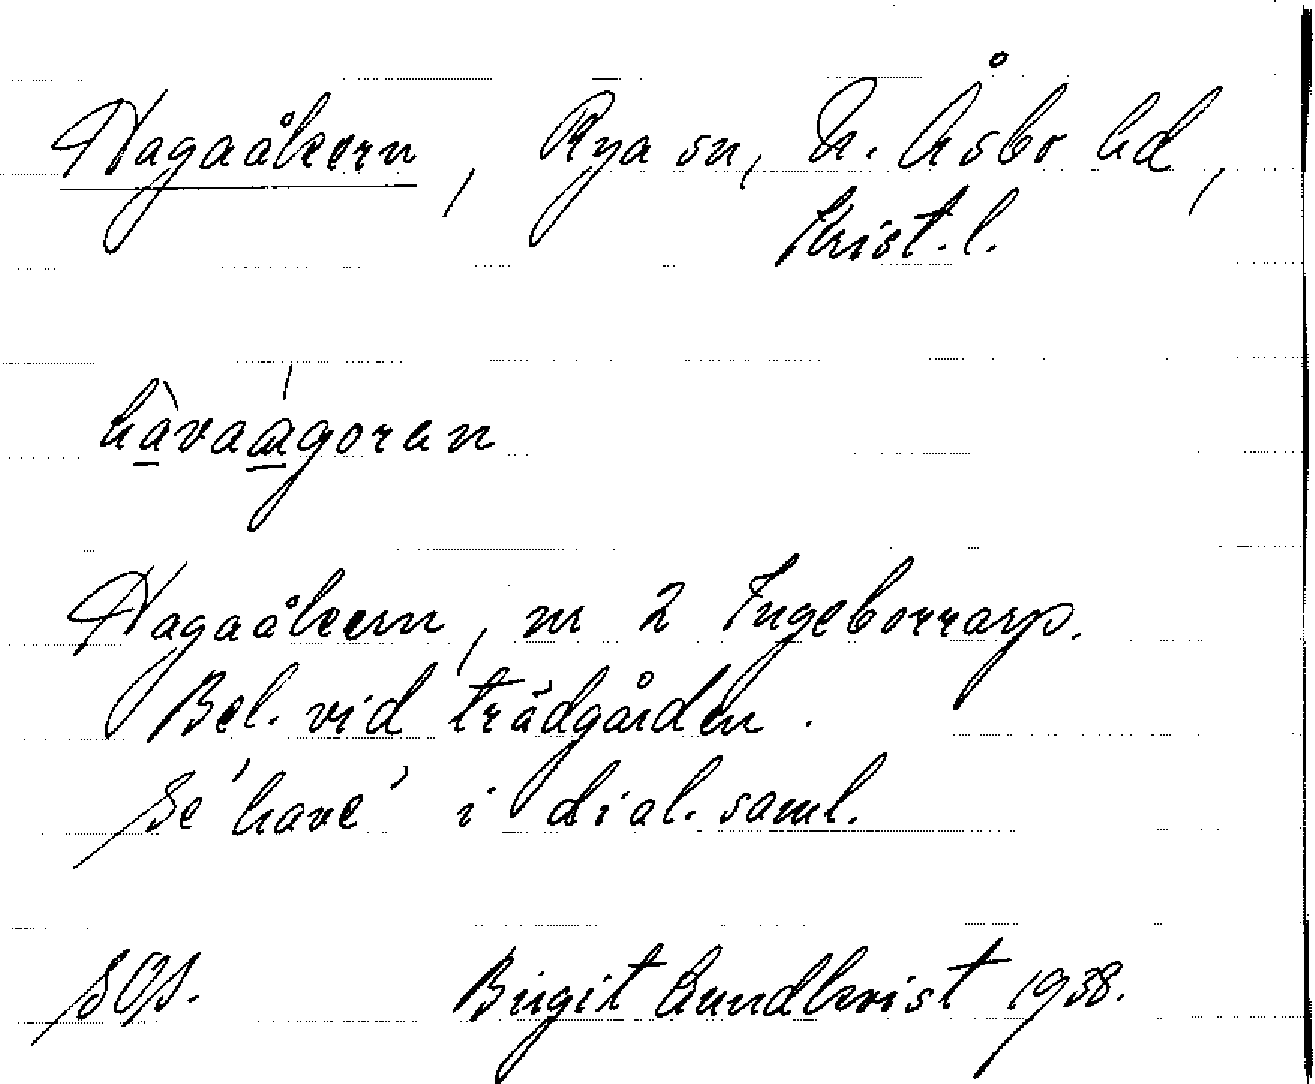 Hagaåkern, Rya sn, N. Åsbo hd,
Krist. l.
hàvaágoran
Hagaåkern, nr 2 Ingeborrarp.
Bel. vid trädgården.
Se 'have' i dial. saml.
SOS. Birgit Lundkvist 1938.